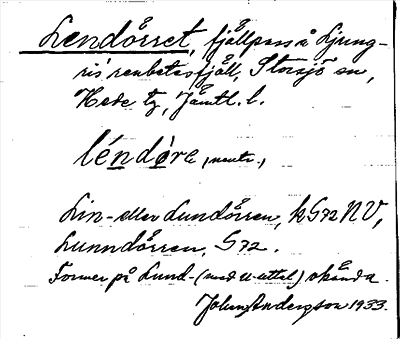 Lendörret, fjällpass å Ljung-
ris' renbetesfjäll, Storsjö sn,
Hede tg, Jämtl. l.
léndöre, neutr.,
Lin- eller Lundörren, kG72 NV,
Lunndörren, G72.
Former på Lund- (med u-uttal) okända.
Johan Andersson 1933.